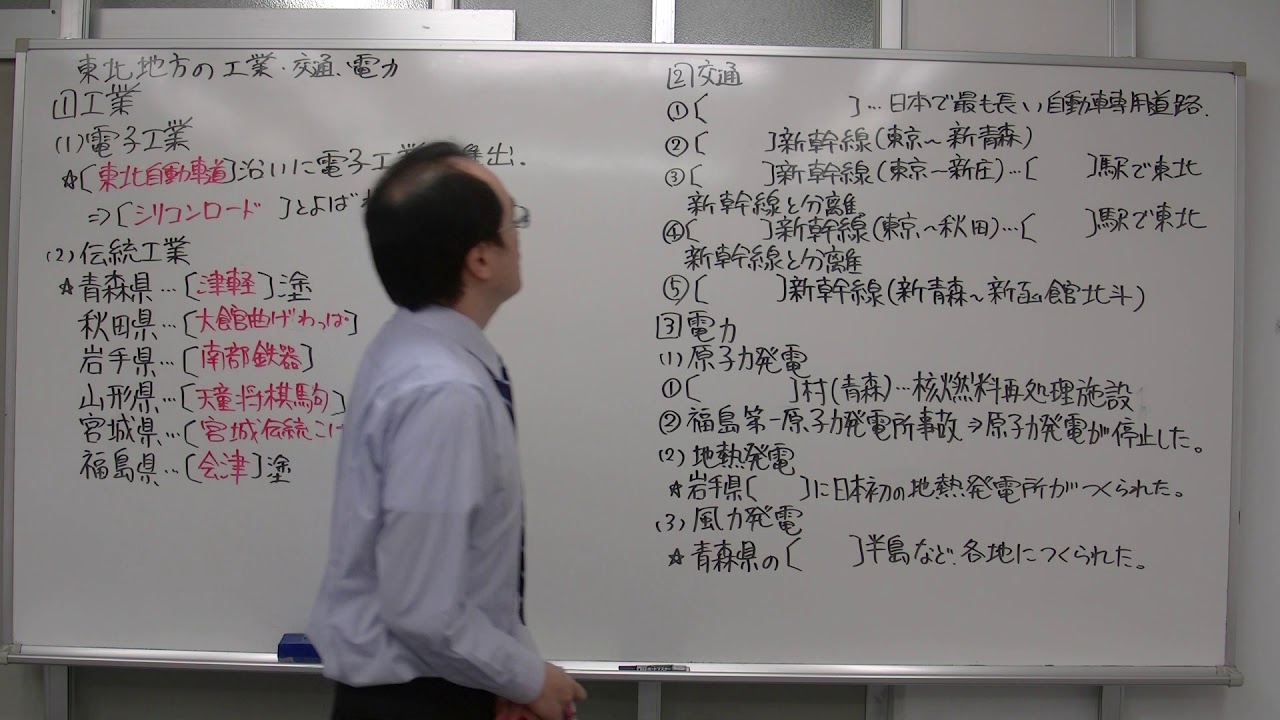 東北地方の工業・交通、電力
1 工業
(1)電子工業
☆[東北自動車道]沿いに電子工業 進出.
⇒[シリコンロード ]とよば
(2)伝統工業
☆青森県…[津軽]塗
秋田県…[大館曲げわっぱ]
岩手県…[南部鉄器]
山形県…[天童将棋駒]
宮城県…[宮城伝統こけ
福島県…[会津]塗
2 交通
①[ ]…日本で最も長い自動車専用道路.
②[ ]新幹線(東京〜新青森)
③[ ]新幹線(東京〜新庄)…[ ]駅で東北
新幹線と分離
④[ ]新幹線(東京〜秋田)…[ ]駅で東北
新幹線と分離
⑤[ ]新幹線(新青森〜新函館北斗)
3 電力
(1)原子力発電
①[ ]村(青森)…核燃料再処理施設
②福島第一原子力発電所事故⇒原子力発電が停止した。
(2)地熱発電
☆岩手県[ ]に日本初の地熱発電所がつくられた。
(3)風力発電
☆青森県の[ ]半島など、各地につくられた。